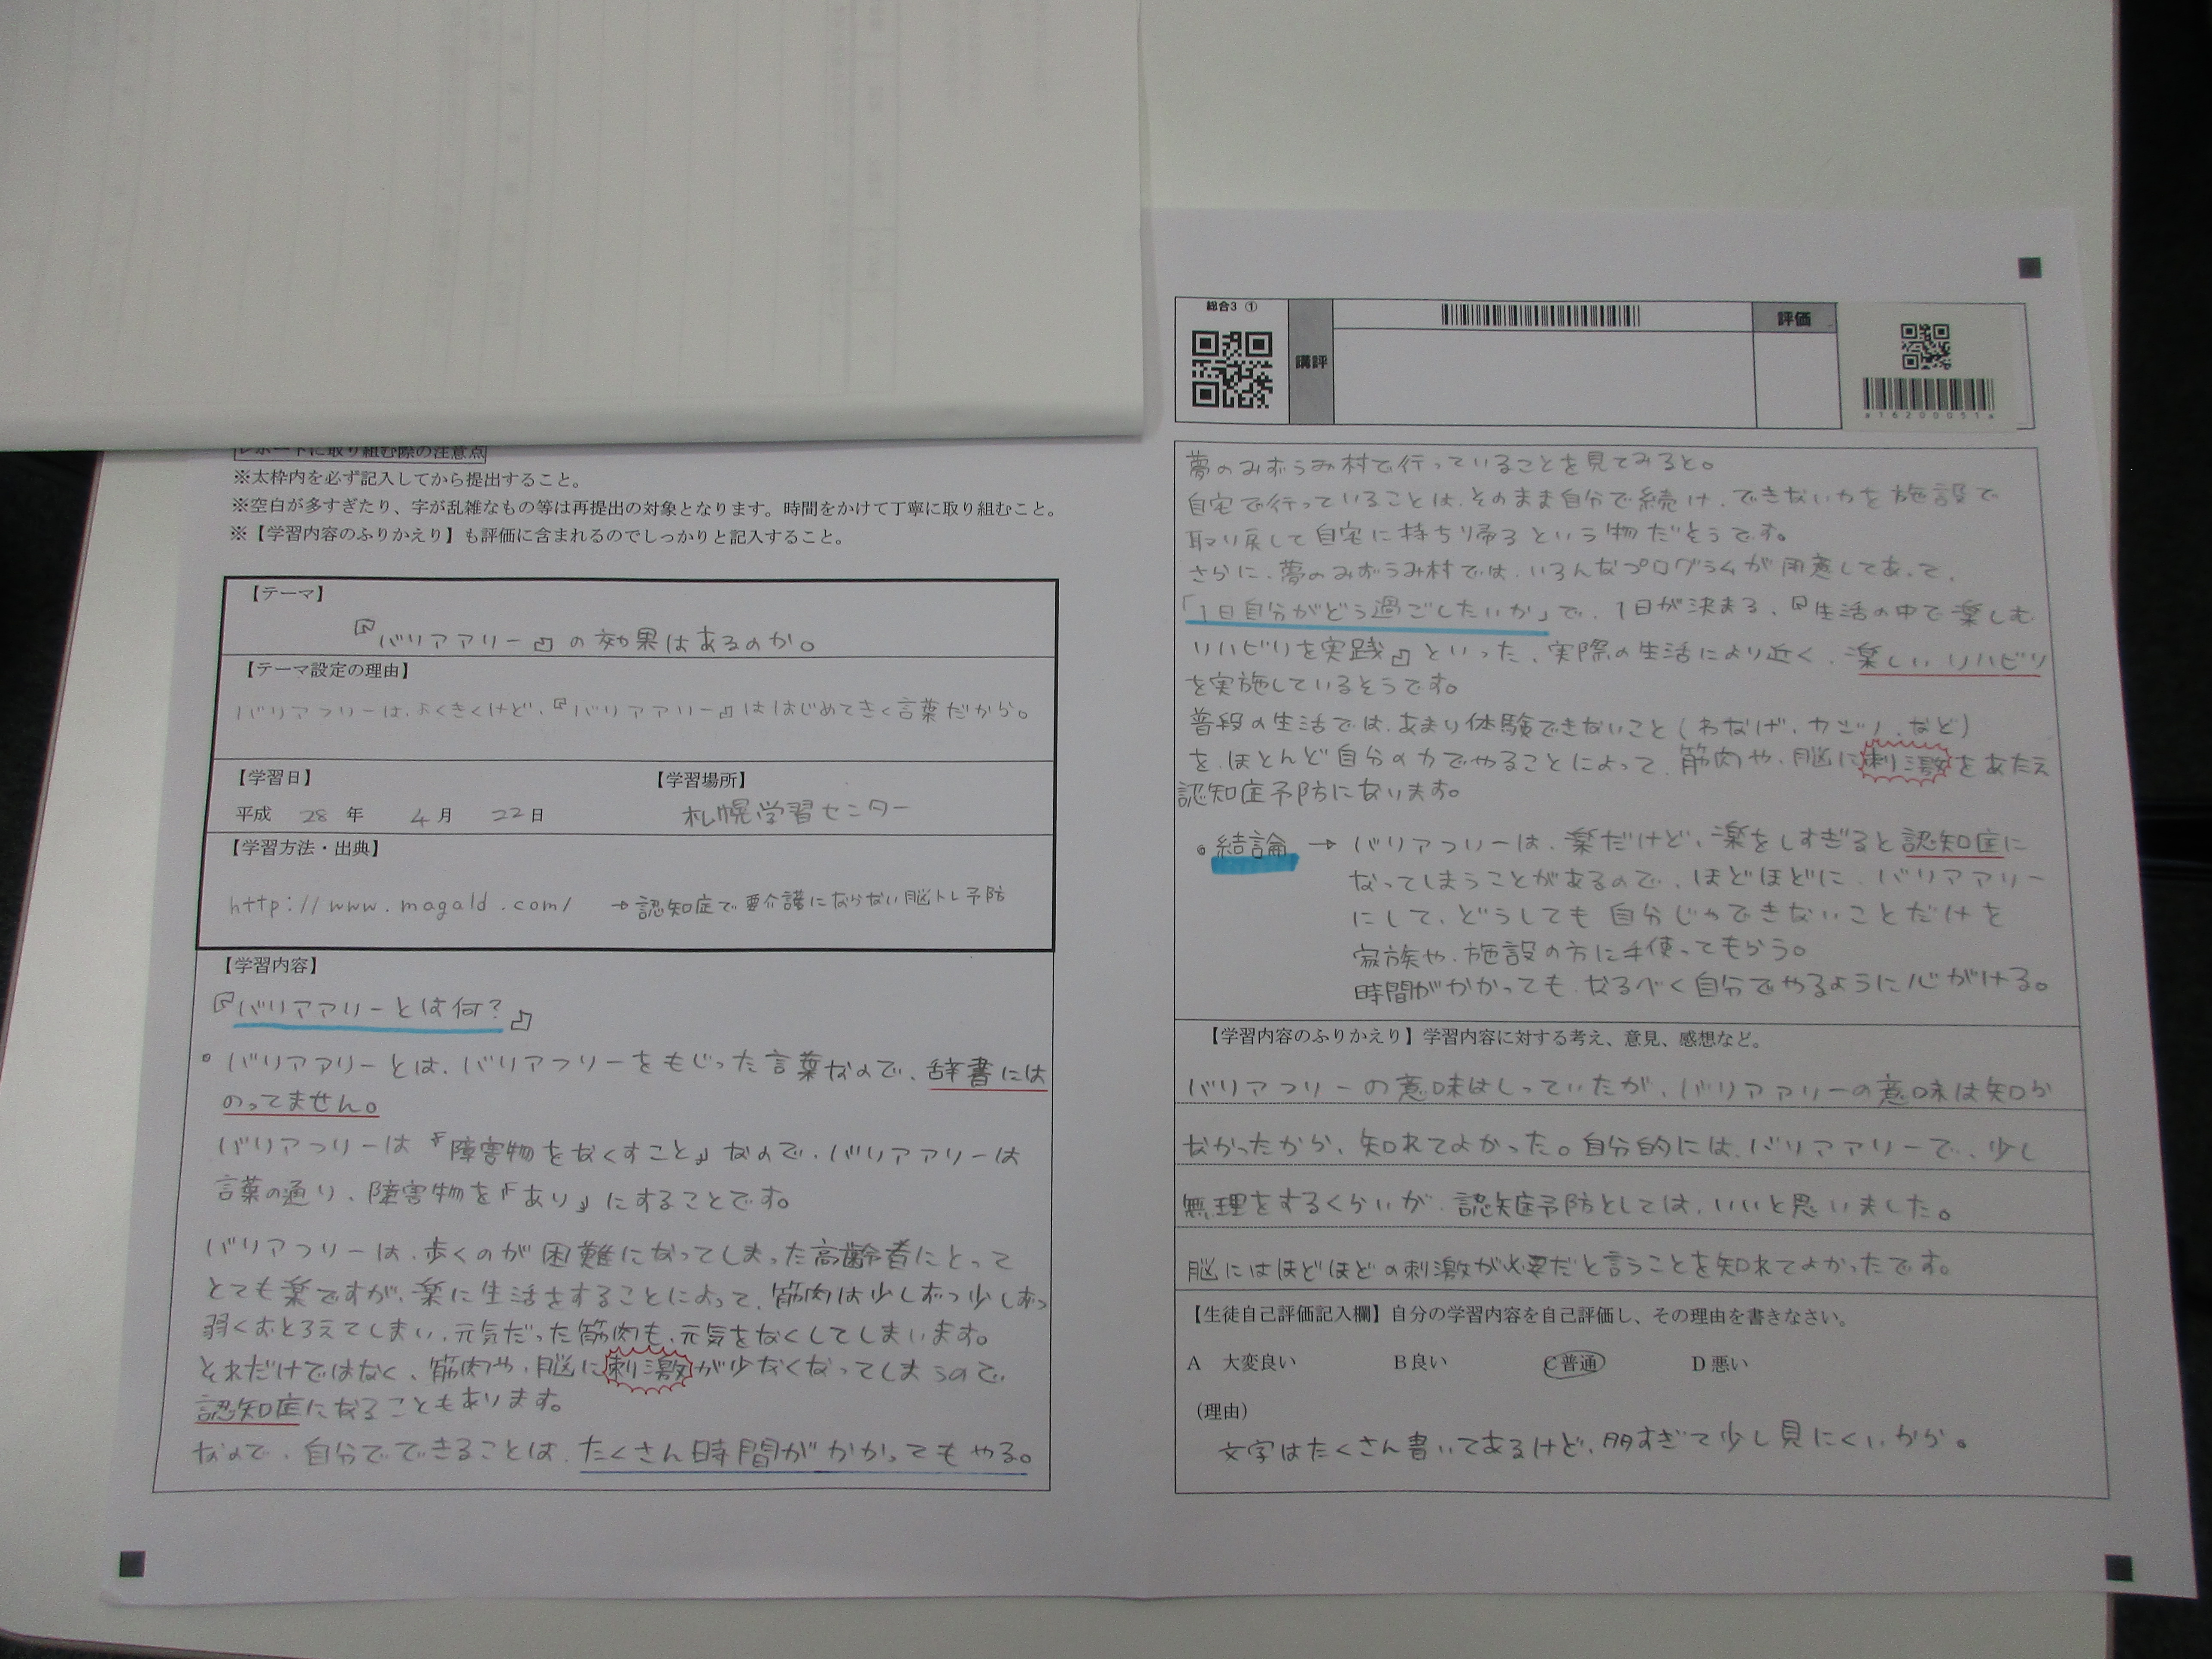 レポートに取り組む際の注意点
※太枠内を必ず記入してから提出すること。
※空白が多すぎたり、字が乱雑なもの等は再提出の対象となります。時間をかけて丁寧に取り組むこと。
※【学習内容のふりかえり】も評価に含まれるのでしっかりと記入すること。
【テーマ】
『バリアアリー』の効果はあるのか。
【テーマ設定の理由】
バリアフリーは、よくきくけど、『バリアアリー』ははじめてきく言葉だから。
【学習日】 【学習場所】
平成 28 年 4 月 22 日 札幌学習センター
【学習方法・出典】
http://www.magald.com/ →認知症で要介護にならない脳トレ予防
【学習内容】
『バリアアリーとは何?』
・バリアアリーとは、バリアフリーをもじった言葉なので、辞書には
のってません。
バリアフリーは『障害物をなくすこと』なので、バリアアリーは
言葉の通り、障害物を『あり』にすることです。
バリアフリーは、歩くのが困難になってしまった高齢者にとって
とても楽ですが、楽に生活をすることによって、筋肉は少しずつ少しずつ
弱くおとろえてしまい、元気だった筋肉も、元気をなくしてしまいます。
それだけではなく、筋肉や、脳に刺激が少なくなってしまうので、
認知症になることもあります。
なので、自分でできることは、たくさん時間がかかってもやる。
総合3 ①
講評
評価
a162000051a
夢のみずうみ村で行っていることを見てみると。
自宅で行っていることは、そのまま自分で続け、できない力を施設で
取り戻して自宅に持ち帰るという物だそうです。
さらに、夢のみずうみ村では、いろんなプログラムが用意してあって、
「1日自分がどう過ごしたいか」で、1日が決まる、『生活の中で楽しむ
リハビリを実践』といった、実際の生活により近く、楽しいリハビリ
を実施しているそうです。
普段の生活では、あまり体験できないこと(わなげ、カジノ、など)
を、ほとんど自分の力でやることによって、筋肉や、脳に刺激をあたえ
認知症予防になります。
・結論 → バリアフリーは、楽だけど、楽をしすぎると認知症に
なってしまうことがあるので、ほどほどに、バリアアリー
にして、どうしても自分じゃできないことだけを
家族や、施設の方に手使ってもらう。
時間がかかっても、なるべく自分でやるように心がける。
【学習内容のふりかえり】学習内容に対する考え、意見、感想など。
バリアフリーの意味はしっていたが、バリアアリーの意味は知ら
なかったから、知れてよかった。自分的には、バリアアリーで、少し
無理をするくらいが、認知症予防としては、いいと思いました。
脳にはほどほどの刺激が必要だと言うことを知れてよかったです。
【生徒自己評価記入欄】自分の学習内容を自己評価し、その理由を書きなさい。
A 大変良い B 良い C 普通 D 悪い
(理由)
文字はたくさん書いてあるけど、多すぎて少し見にくいから。